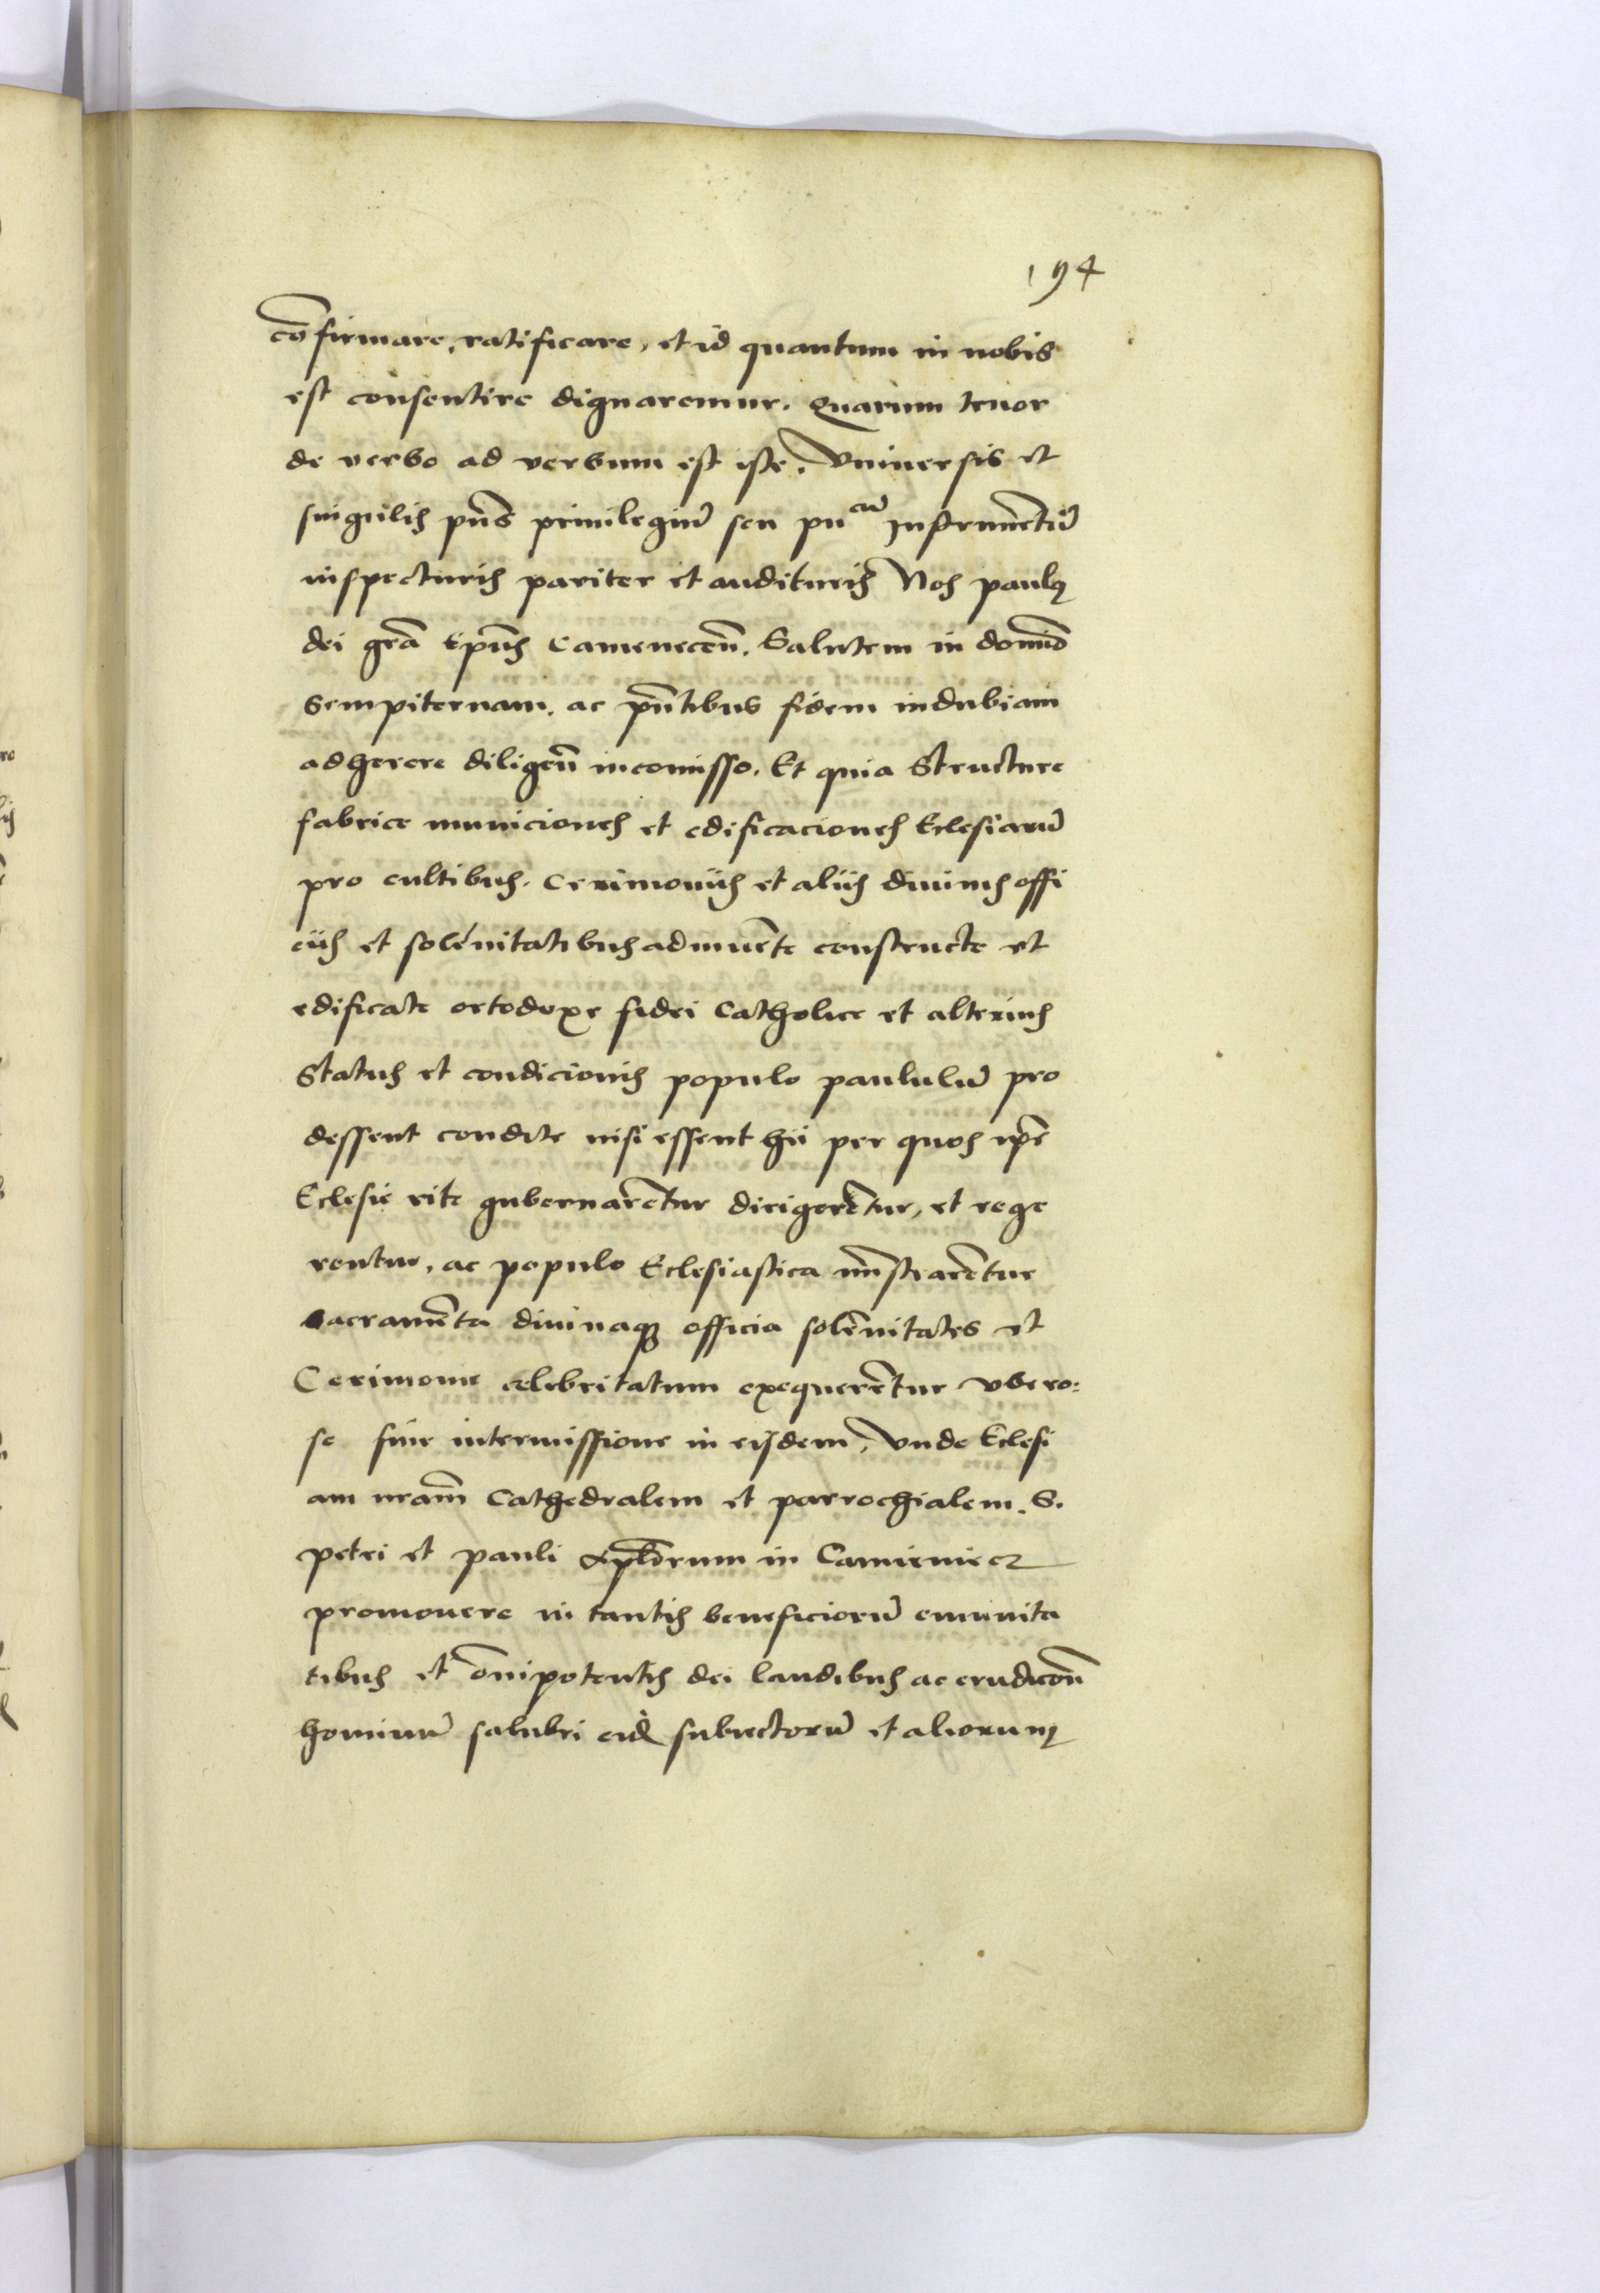 194
cōfirmare, ratificare, et id quantum in nobis
est consentire dignaremur. Quarum tenor
de verbo ad verbum est iste. Vniuersis et
singulis pn̄s priuilegiū seu pu^cū Instrumētū
inspecturis pariter et audituris Nos paulꝯ
dei gr̄a Ep̄us Camenecen̄. Salutem in domīo
sempiternam. ac pn̄tibus fidem indubiam
adherere diligen̄ incomisso. Et quia Structure
fabrice municiones et edificaciones Eclesiarū
pro cultibus. Cerimoniis et aliis diuinis offi
ciis et solēnitatibus adinuēte constructe et
edificate ortodoxe fidei Catholice et alterius
Status et condicionis populo paululū pro
dessent condite nisi essent hii per quos ip̄e
Eclesie rite gubernarētur dirigerētur, et rege
rentur, ac populo Eclesiastica mīstrarētur
sacramēta diuinaqꝫ officia solēnitates et
Cerimonie celebritatum exequerētur vbero:
se sine intermissione in eisdem, Vnde Eclesi
am nr̄am Cathedralem et parrochialem. S.
petri et pauli Apl̄orum in Camieniecz
promouere in tantis beneficiorū emunita
tibus et om̄ipotentis dei laudibus ac erudicōn̄
hominū salubri eid̄ subiectorū et aliorum